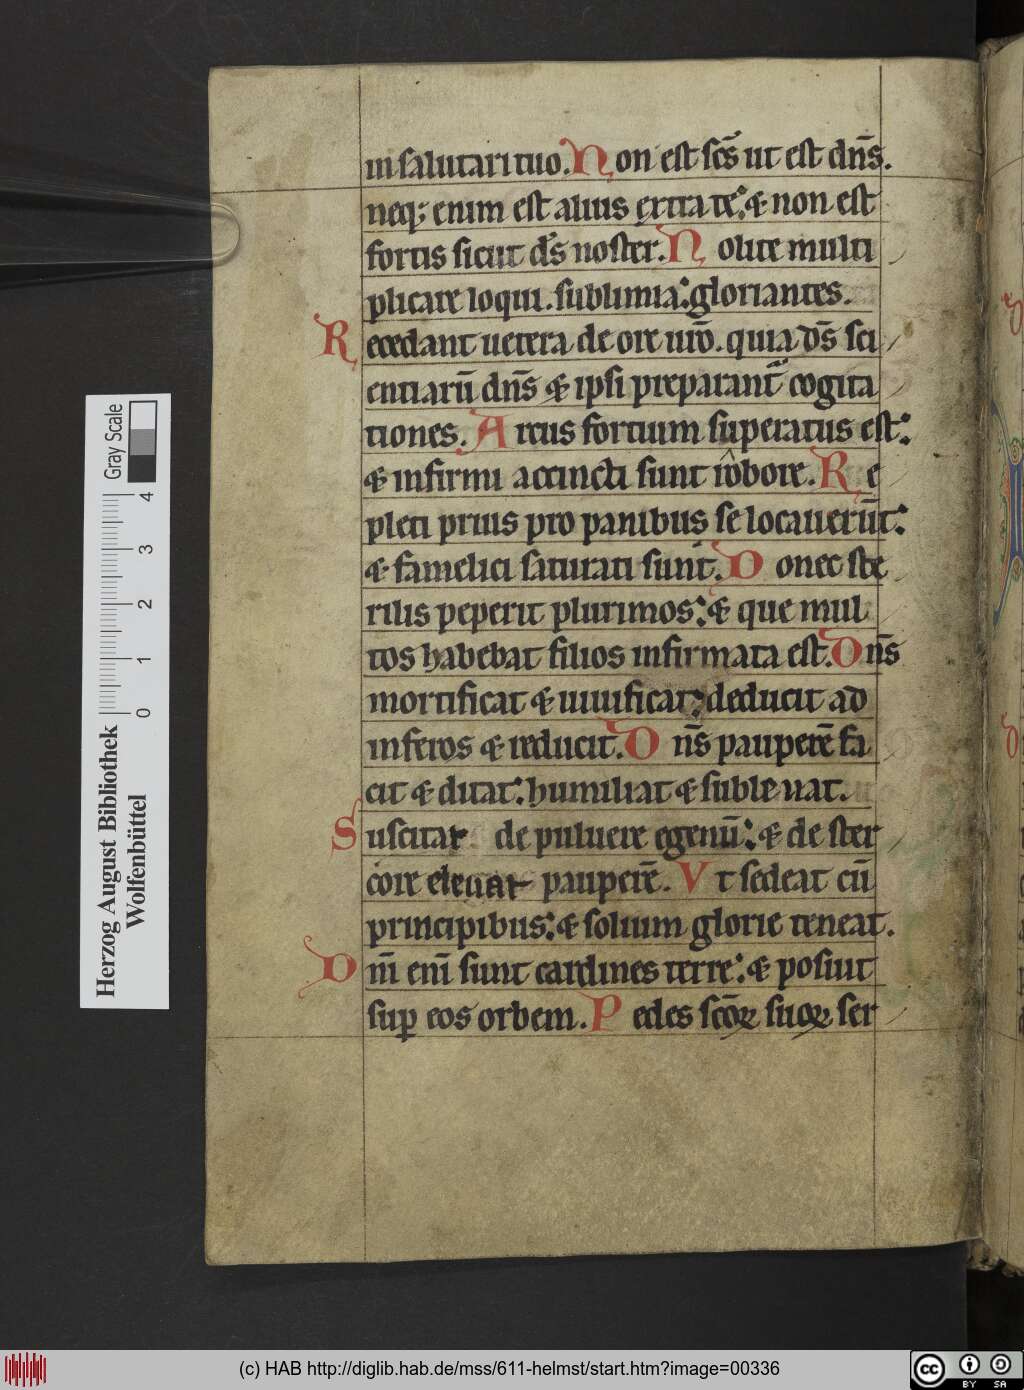 in salutari tuo. Non est scs̄ ut est dn̄s.
neq; enim est alius extra te: & non est
fortis sicut ds̄ noster. Nolite multi
plicare loqui. sublimia: gloriantes.
Recedant uetera de ore ur̄o. quia ds̄ sci
entiarū dn̄s & ipsi preparant᷑ cogita
tiones. Arcus fortium superatus est:
& infirmi accincti sunt robore. Re
pleti prius pro panibus se locauerūt:
& famelici saturati sunt. Donec ste
rilis peperit plurimos: & que mul
tos habebat filios infirmata est. Dn̄s
mortificat & uiuificat: deducit ad
inferos & reducit. Dn̄s pauperē fa
cit & ditat: humiliat & subleuat.
Suscitat de puluere egenū: & de ster
core eleuat pauperē. Vt sedeat cū
principibus: & solium glorie teneat.
Dn̄i eni̅ sunt cardines terre: & posuit
suꝑ eos orbem. Pedes sc̄oꝝ suoꝝ ser
Gray Scale
0 1 2 3 4
Herzog August Bibliothek
Wolfenbüttel
(c) HAB http://diglib.hab.de/mss/611-helmst/start.htm?image=00336
cc BY SA